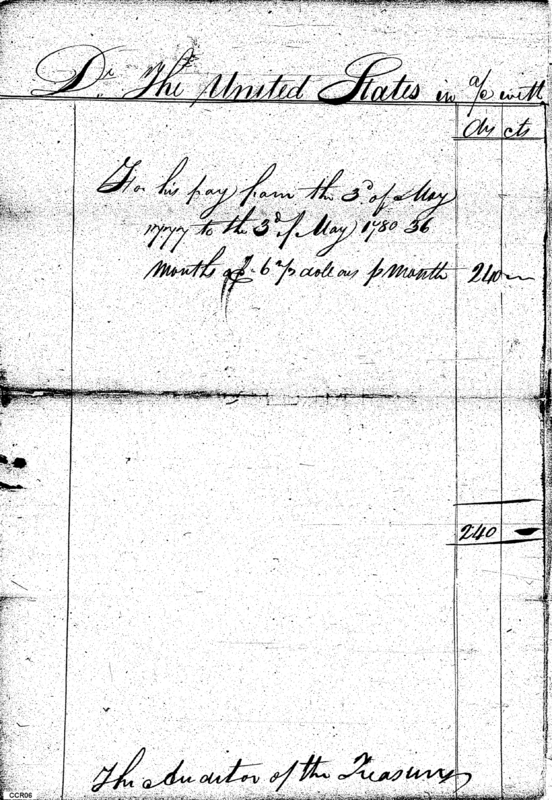 Dr. The United States in a/c with
dls cts
For his pay from the 3d of May
1777 to the 3d of May 1780 36
months @ 6 2/3 dollars p month 240
240
The Auditor of the Treasury
CCR06